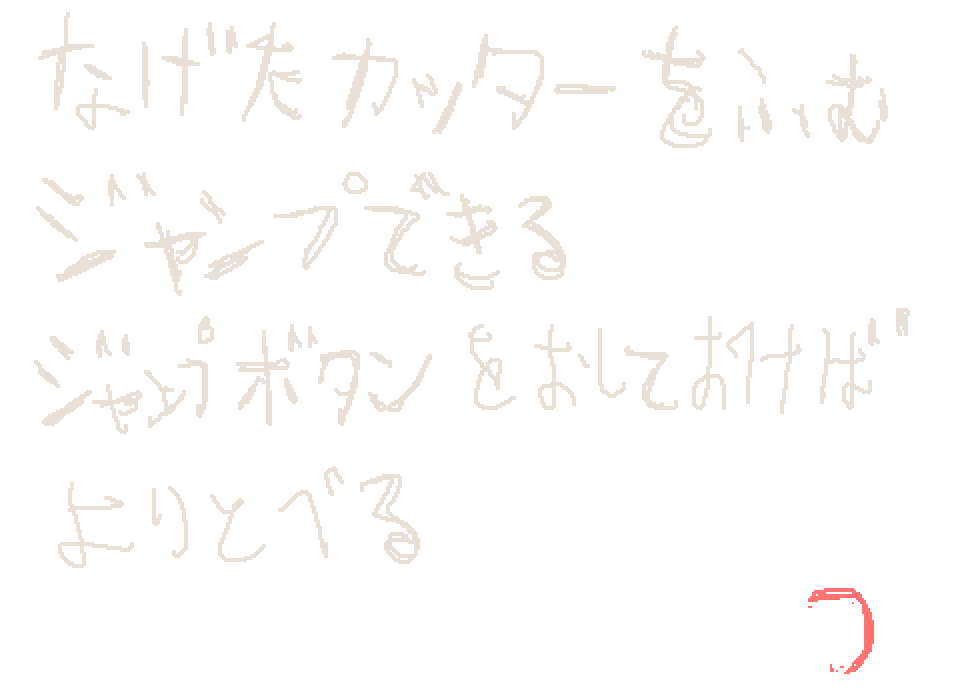 なげたカッターをふむ
ジャンプできる
ジャンプボタンをおしておけば
よりとべる